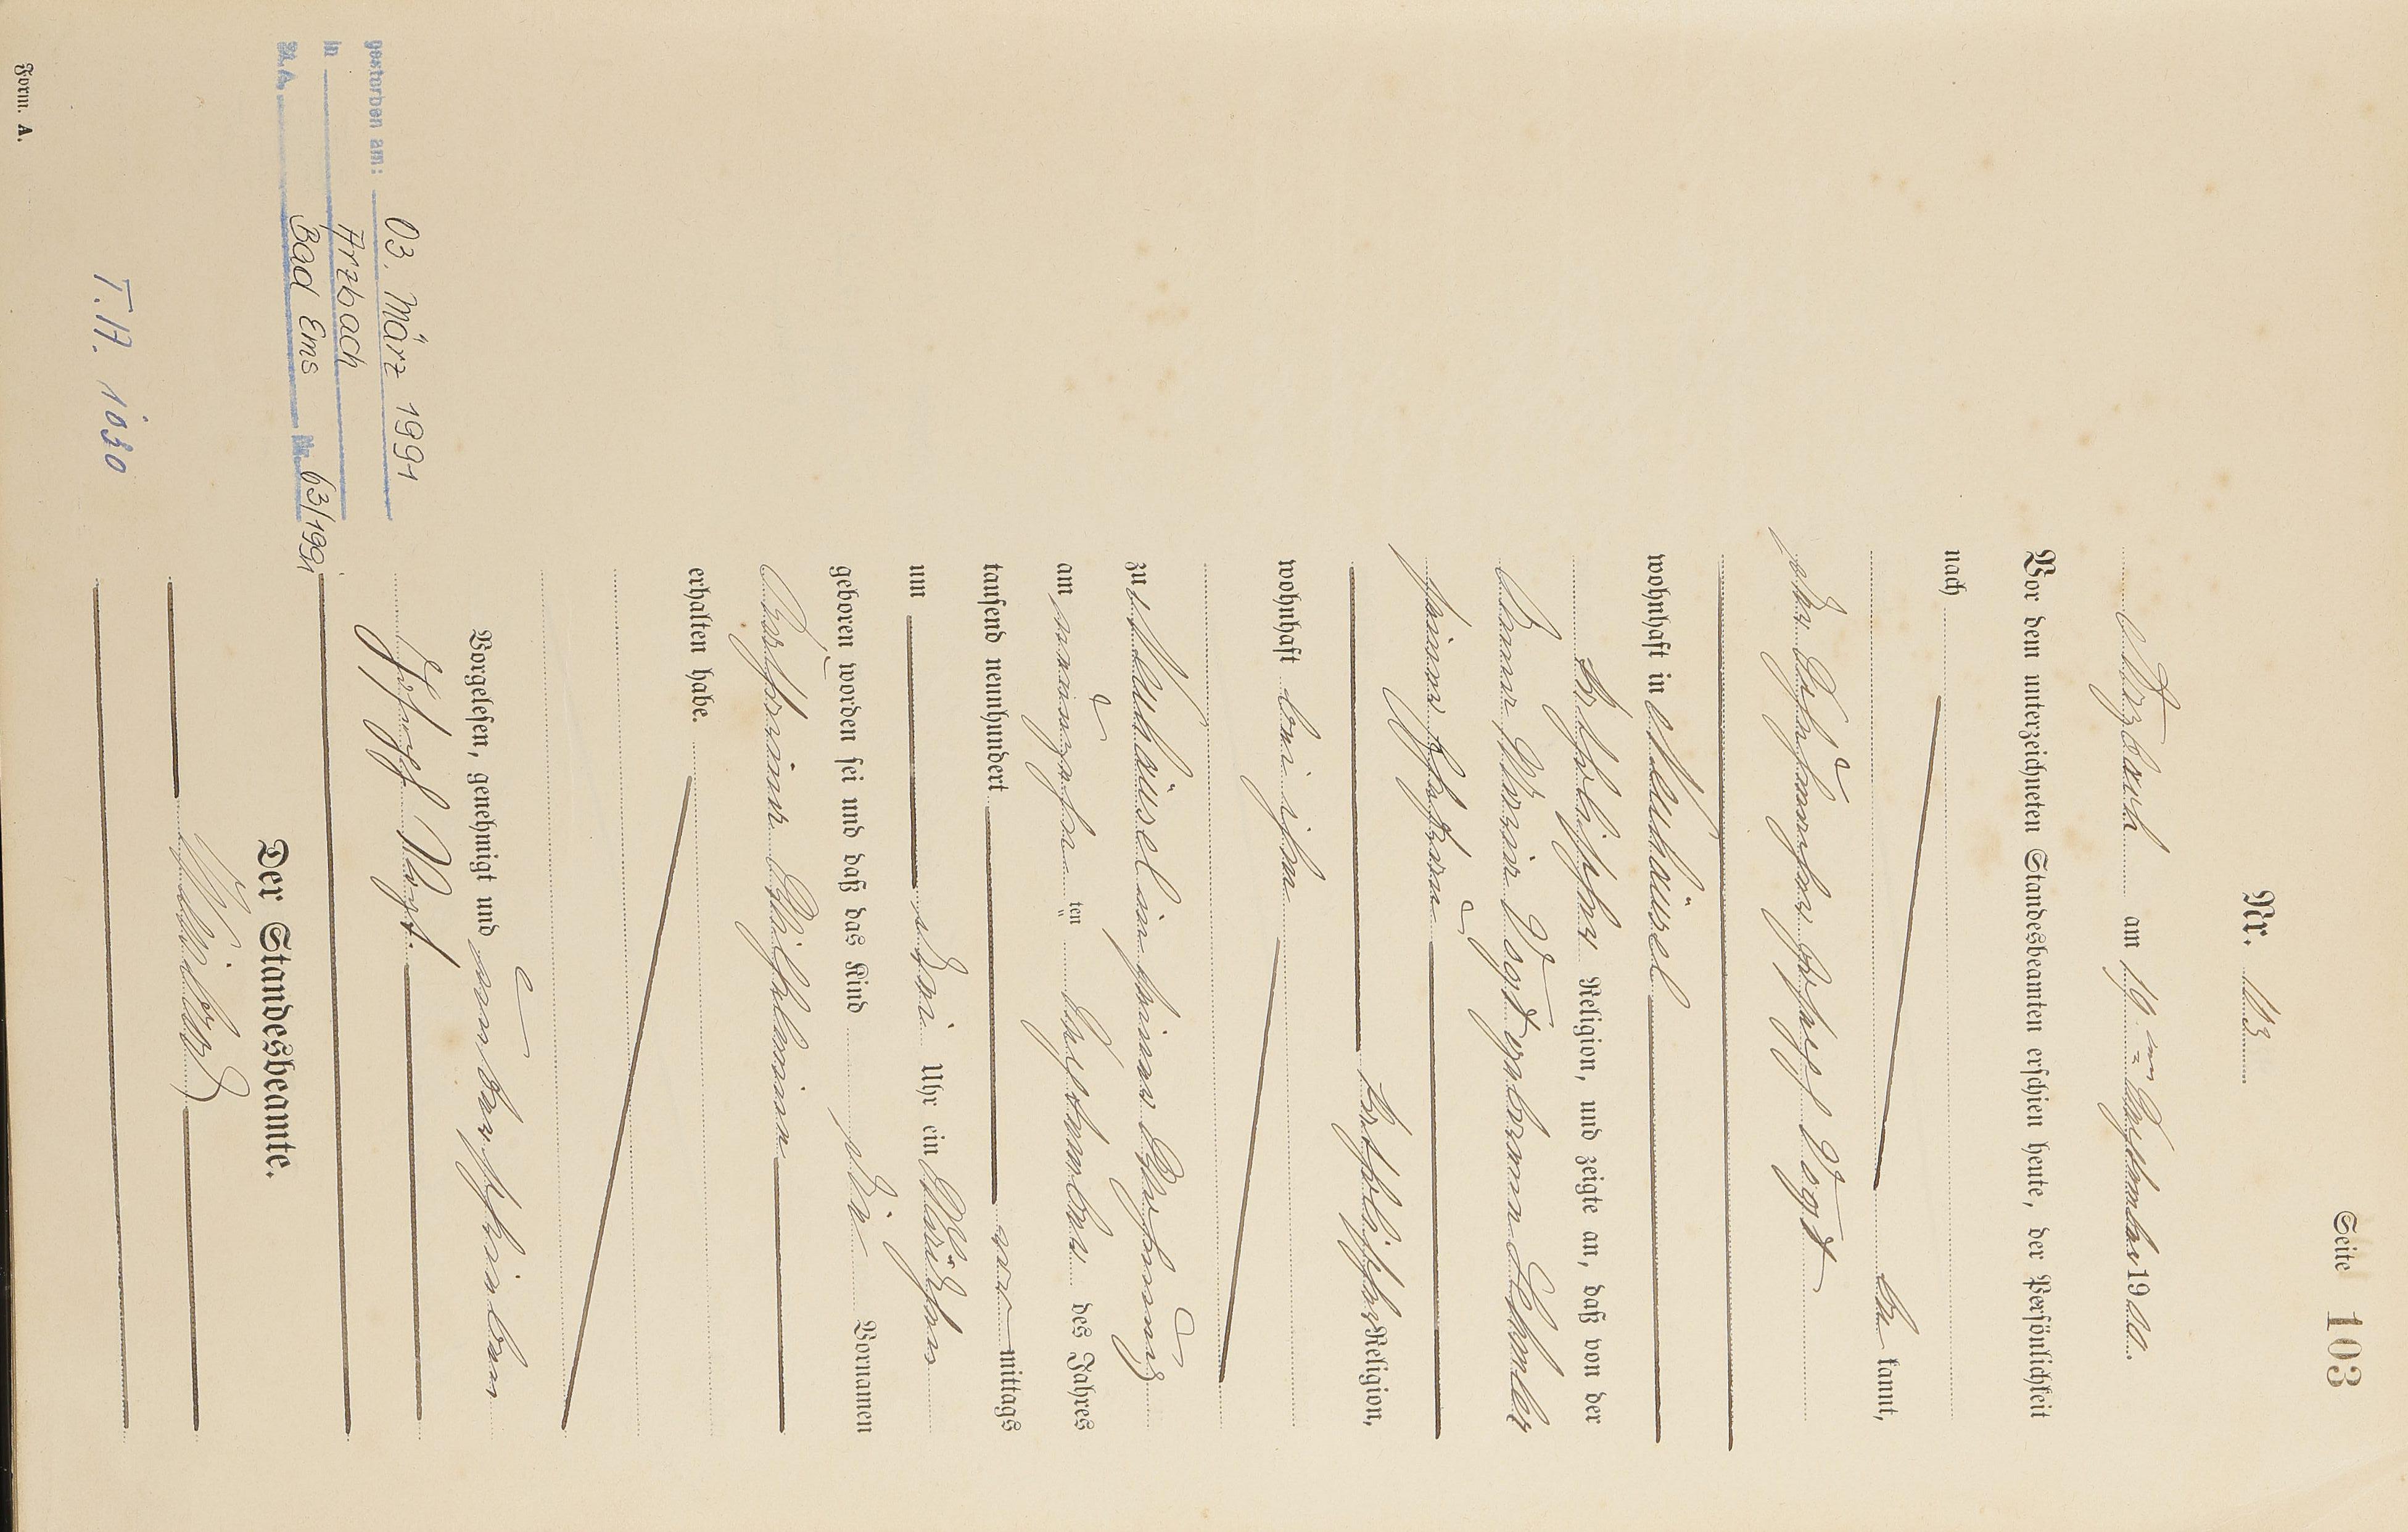 Seite 103
Nr. 103
Arzbach am 19ten September 1920.
Vor dem unterzeichneten Standesbeamten erschien heute, der Persönlichkeit
nach
bekannt,
der Joseph Vogt
wohnhaft in Neuhäusel
katholischer Religion, und zeigte an, daß von der
Anna Maria Vogt geborenen
seiner Ehefrau
katholischer Religion,
wohnhaft bei ihm
zu Neuhäusel in seiner Wohnung
am neunzehnten September des Jahres
tausend neunhundert vormittags
um drei Uhr ein Mädchen
geboren worden sei und daß das Kind die Vornamen
Katharina Wilhelmine
erhalten habe.
Vorgelesen, genehmigt und unterschrieben
Joseph Vogt
Der Standesbeamte.
gestorben am: 03. März 1991
in Arzbach
St.A. Bad Ems Nr. 63/1991
T.H. 1030
Form. A.